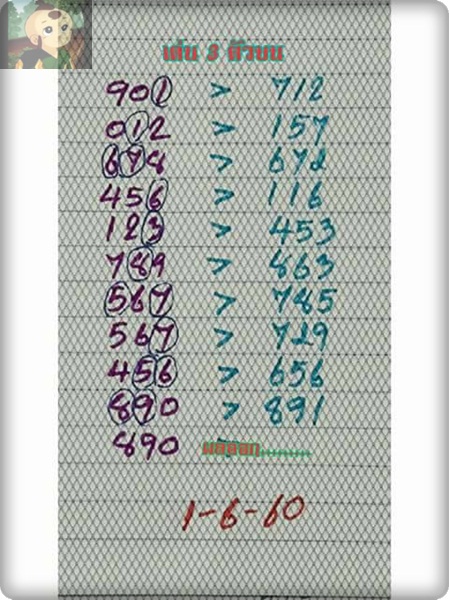 เด่น 3 ตัวบน
901 > 712
012 > 157
678 > 672
456 > 116
123 > 453
789 > 863
567 > 785
567 > 729
456 > 656
890 > 891
890 ผลออก.........
1-6-60